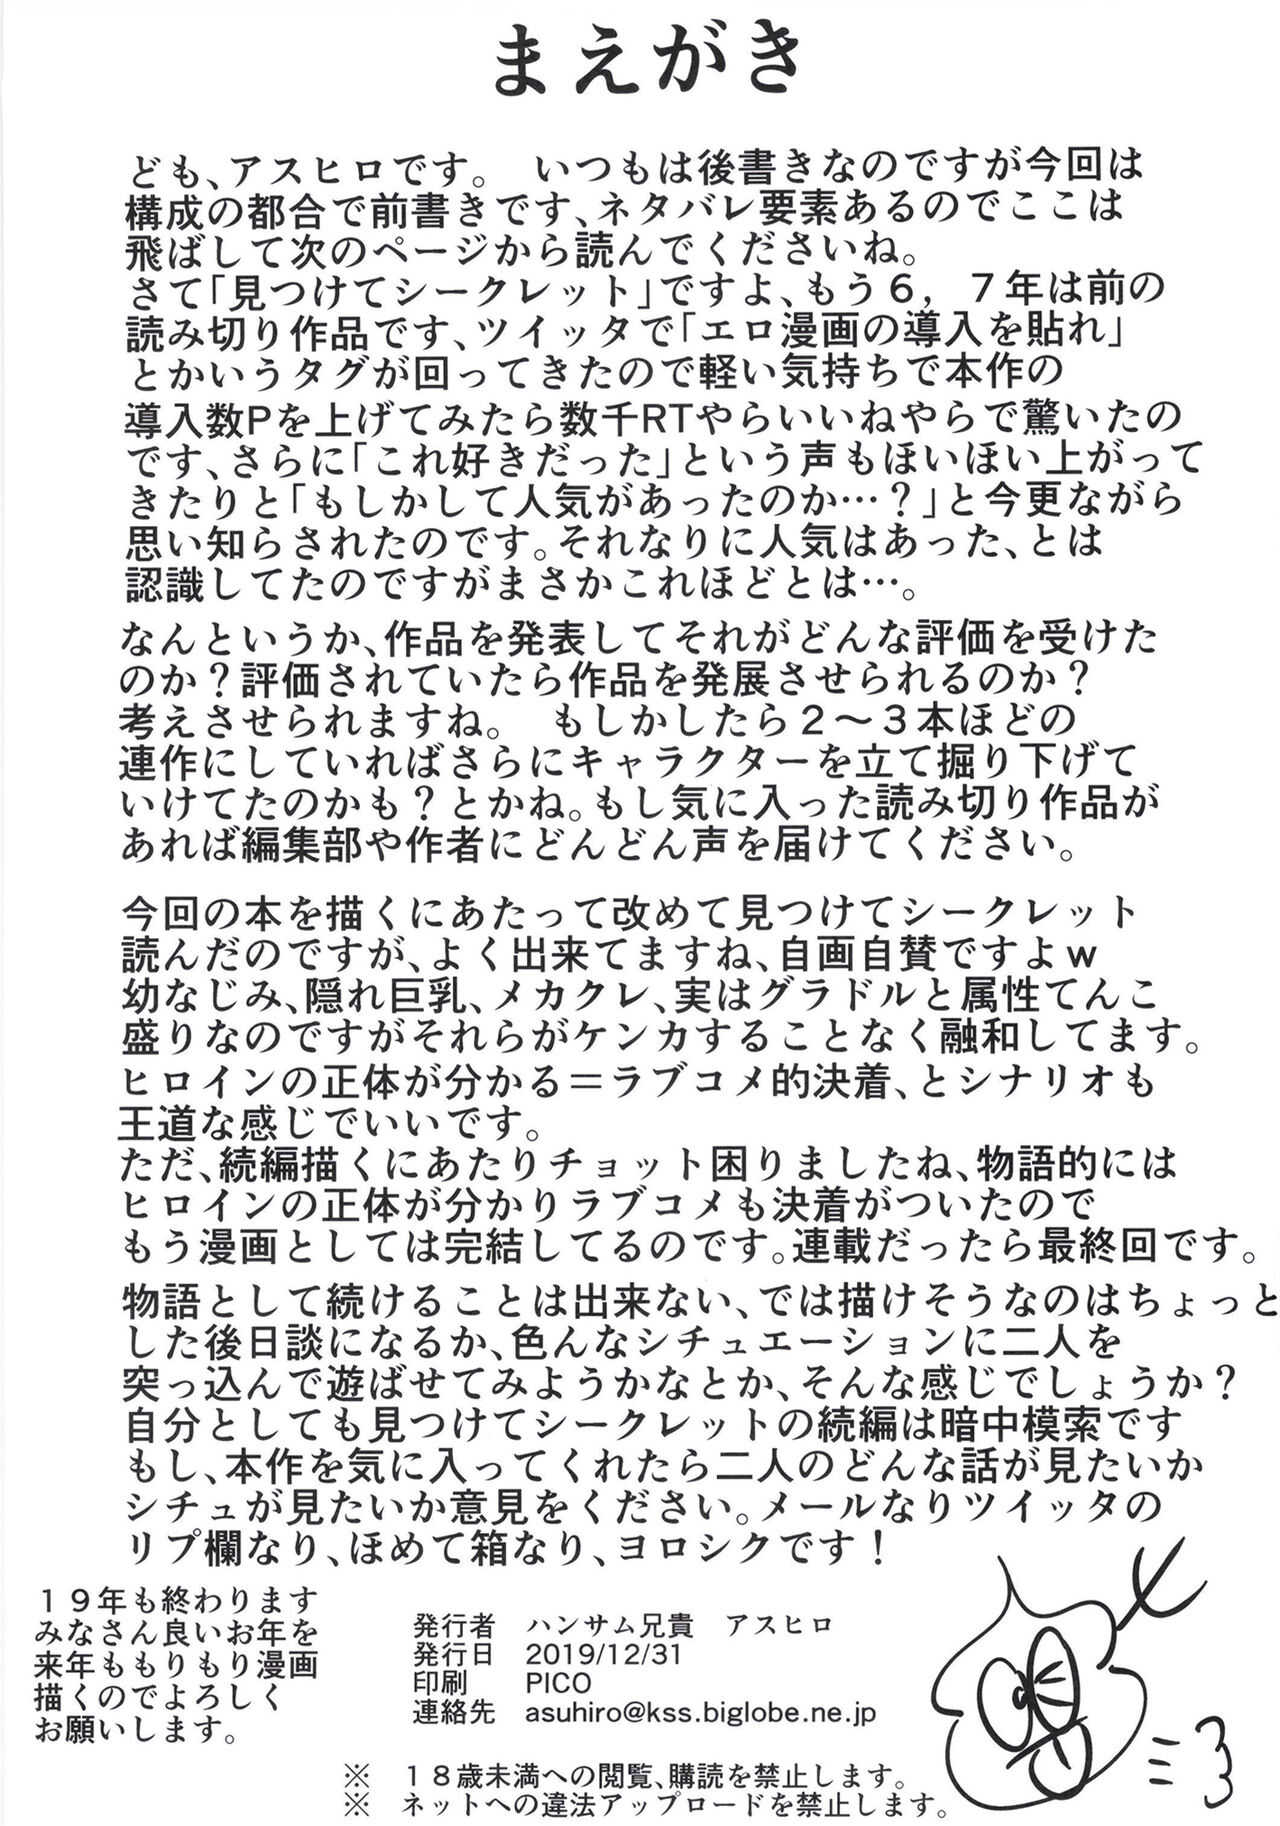 まえがき
ども、アスヒロです。　いつもは後書きなのですが今回は
構成の都合で前書きです、ネタバレ要素あるのでここは
飛ばして次のページから読んでくださいね。
さて「見つけてシークレット」ですよ、もう６，７年は前の
読み切り作品です、ツイッタで「エロ漫画の導入を貼れ」
とかいうタグが回ってきたので軽い気持ちで本作の
導入数Pを上げてみたら数千RTやらいいねやらで驚いたの
です、さらに「これ好きだった」という声もほいほい上がって
きたりと「もしかして人気があったのか…？」と今更ながら
思い知らされたのです。それなりに人気はあった、とは
認識してたのですがまさかこれほどとは…。
なんというか、作品を発表してそれがどんな評価を受けた
のか？評価されていたら作品を発展させられるのか？
考えさせられますね。　もしかしたら２～３本ほどの
連作にしていればさらにキャラクターを立て掘り下げて
いけてたのかも？とかね。もし気に入った読み切り作品が
あれば編集部や作者にどんどん声を届けてください。
今回の本を描くにあたって改めて見つけてシークレット
読んだのですが、よく出来てますね、自画自賛ですよｗ
幼なじみ、隠れ巨乳、メカクレ、実はグラドルと属性てんこ
盛りなのですがそれらがケンカすることなく融和してます。
ヒロインの正体が分かる＝ラブコメ的決着、とシナリオも
王道な感じでいいです。
ただ、続編描くにあたりチョット困りましたね、物語的には
ヒロインの正体が分かりラブコメも決着がついたので
もう漫画としては完結してるのです。連載だったら最終回です。
物語として続けることは出来ない、では描けそうなのはちょっと
した後日談になるか、色んなシチュエーションに二人を
突っ込んで遊ばせてみようかなとか、そんな感じでしょうか？
自分としても見つけてシークレットの続編は暗中模索です
もし、本作を気に入ってくれたら二人のどんな話が見たいか
シチュが見たいか意見をください。メールなりツイッタの
リプ欄なり、ほめて箱なり、ヨロシクです！
１９年も終わります
みなさん良いお年を
来年ももりもり漫画
描くのでよろしく
お願いします。
発行者　ハンサム兄貴　アスヒロ
発行日　2019/12/31
印刷　PICO
連絡先　asuhiro@kss.biglobe.ne.jp
※　１８歳未満への閲覧、購読を禁止します。
※　ネットへの違法アップロードを禁止します。